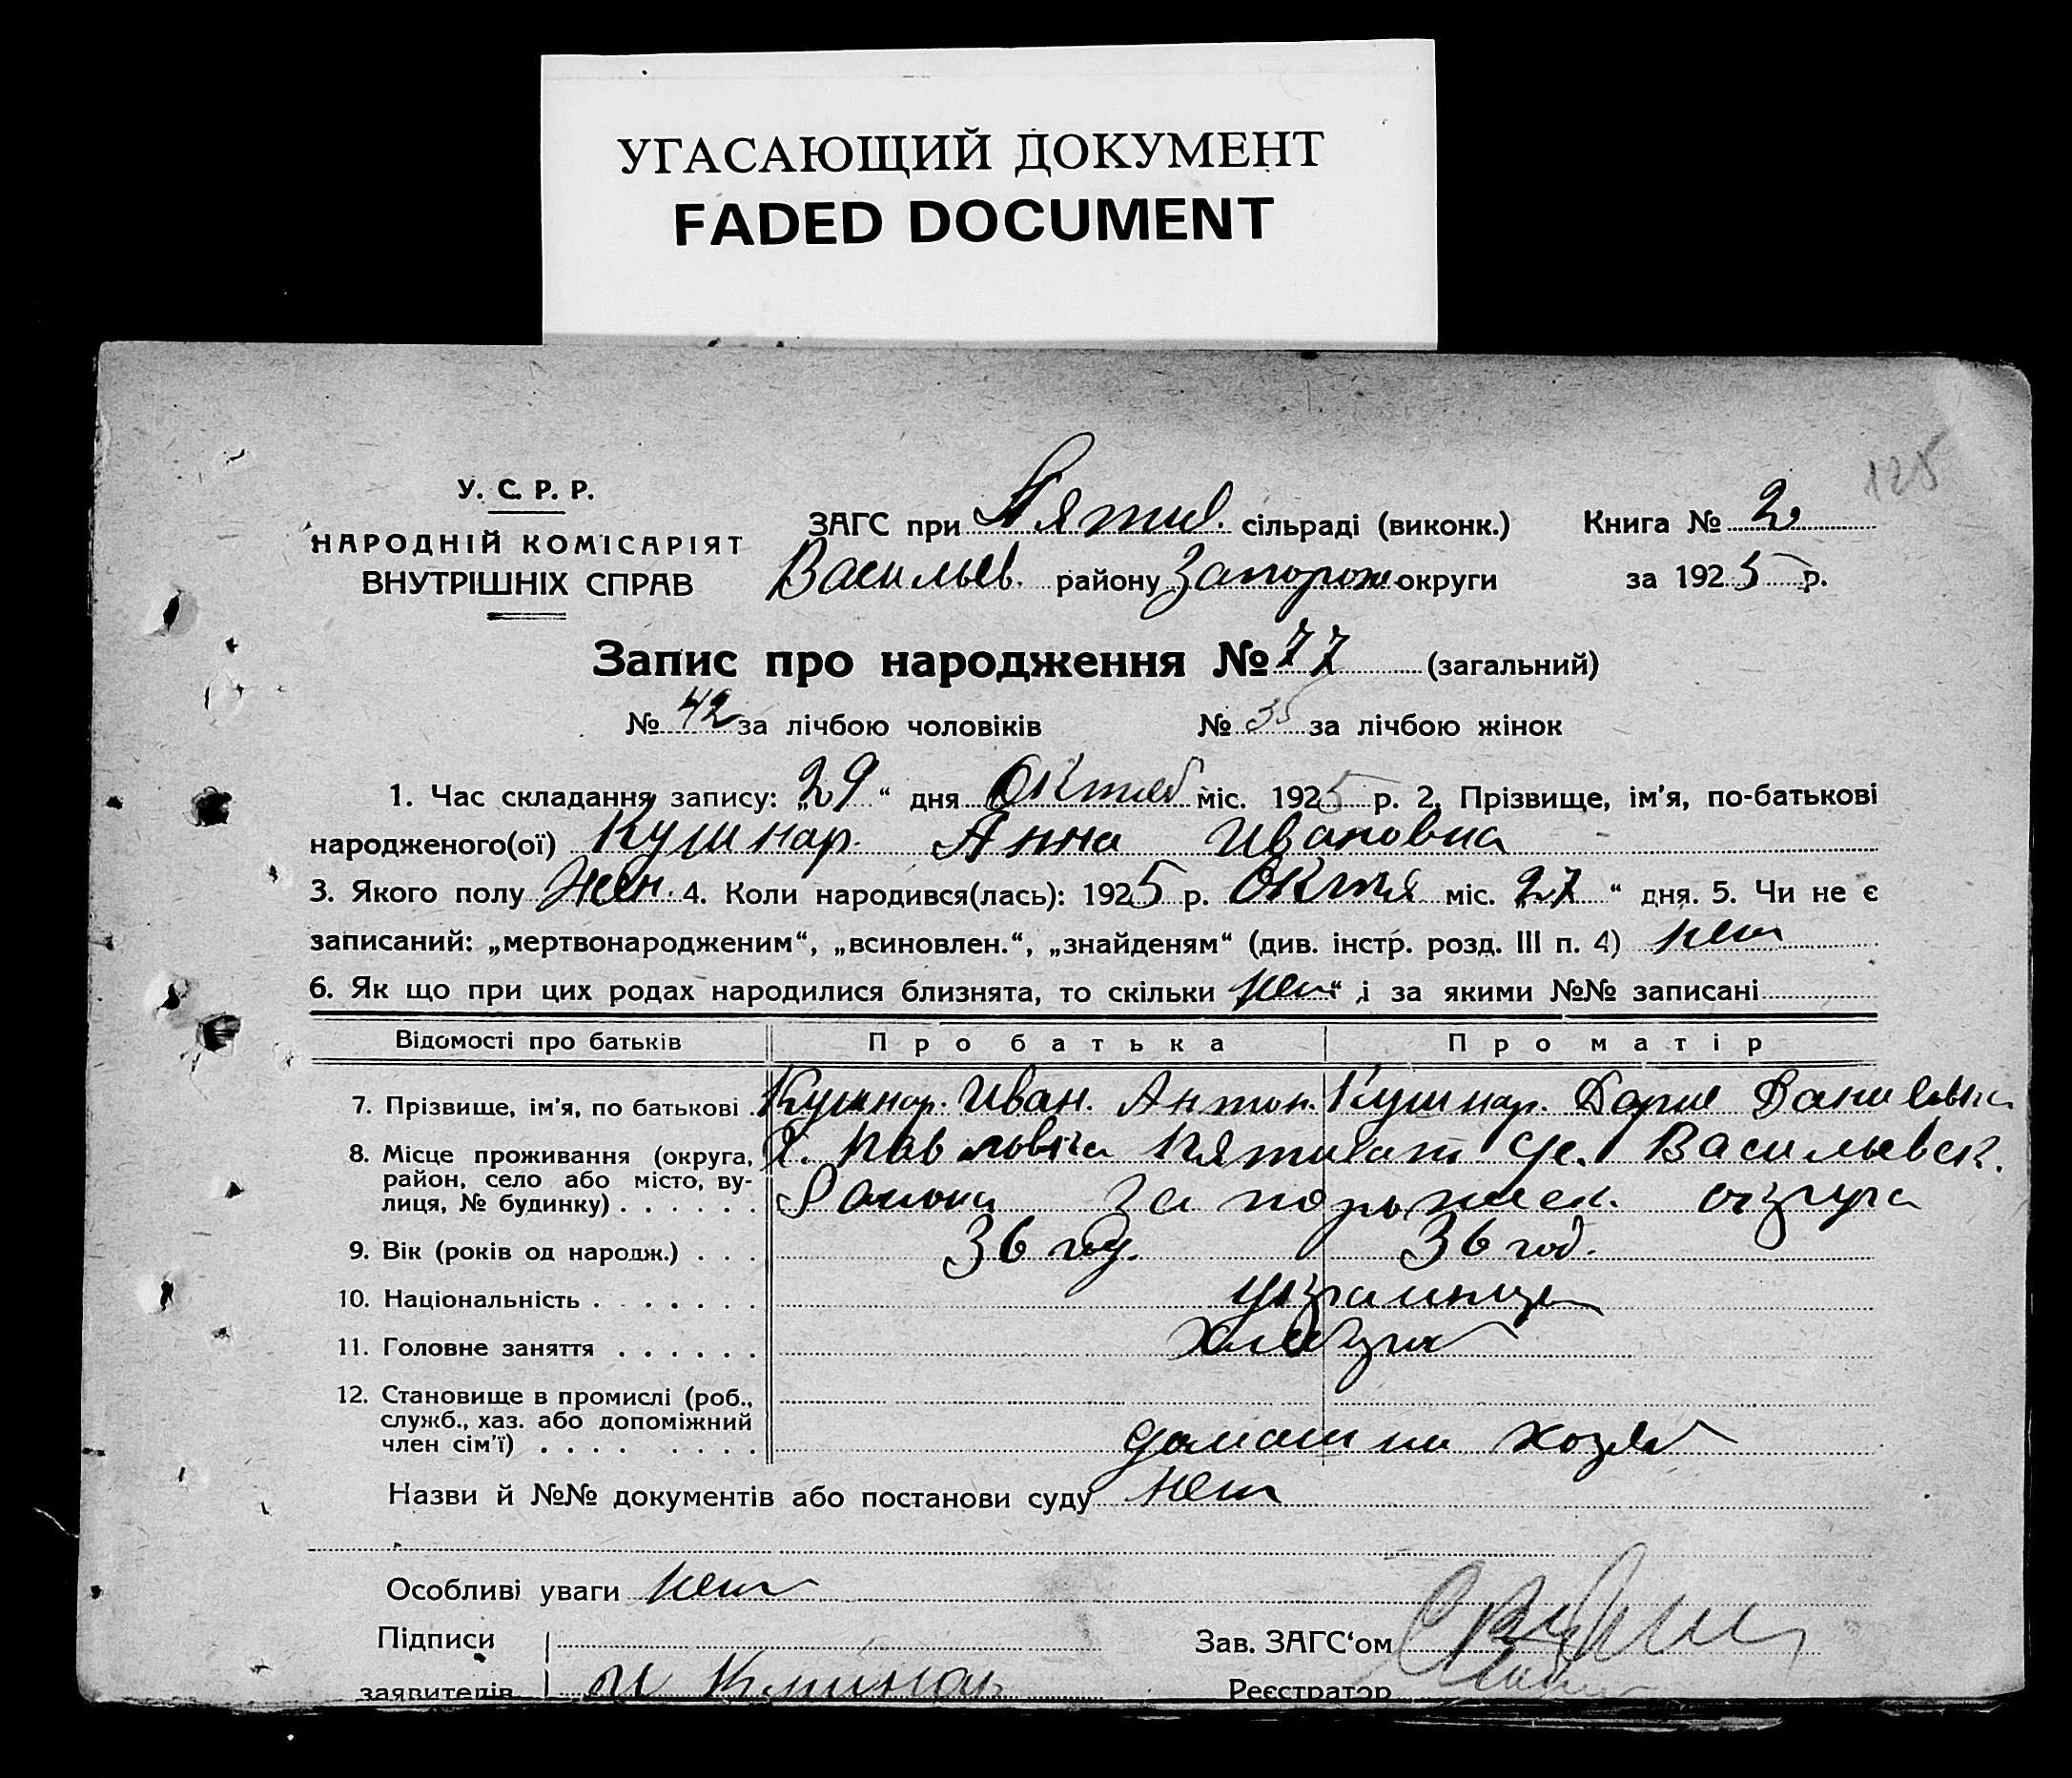 УГАСАЮЩИЙ ДОКУМЕНТ
FADED DOCUMENT
125
У. С. Р. Р.
НАРОДНІЙ КОМІСАРІЯТ
ВНУТРІШНІХ СПРАВ
ЗАГС при Пятих. сільраді (виконк.) Книга № 2
Васильев. району Запорож округи за 1925 р.
Запис про народження № 77 (загальний)
№ 42 за лічбою чоловіків № 35 за лічбою жінок
1. Час складання запису: „29“ дня Октяб міс. 1925 р. 2. Прізвище, ім'я, по-батькові
народженого(ої) Кушнар. Анна Ивановна
3. Якого полу Жен. 4. Коли народився(лась): 1925 р. Октя міс. „27“ дня. 5. Чи не є
записаний: „мертвонародженим“, „всиновлен.“, „знайденям“ (див. інстр. розд. III п. 4) нет
6. Як що при цих родах народилися близнята, то скільки нет“ і за якими №№ записані
Відомості про батьків Про батька Про матір
7. Прізвище, ім'я, по батькові Кушнар. Иван. Антон. Кушнар. Дария Даниловна
8. Місце проживання (округа, район, село або місто, вулиця, № будинку) Х. Павловка Пятихат с/с. Васильевск.
Району Запорожск. округа
9. Вік (років од народж.) 36 год. 36 год.
10. Національність украинцы
11. Головне заняття хлебороб
12. Становище в промислі (роб., служб., хаз. або допоміжний член сім'ї) домашн хозяй
Назви й №№ документів або постанови суду нет
Особливі уваги нет
Підписи Зав. ЗАГС‘ом
заявителів И Реєстратор